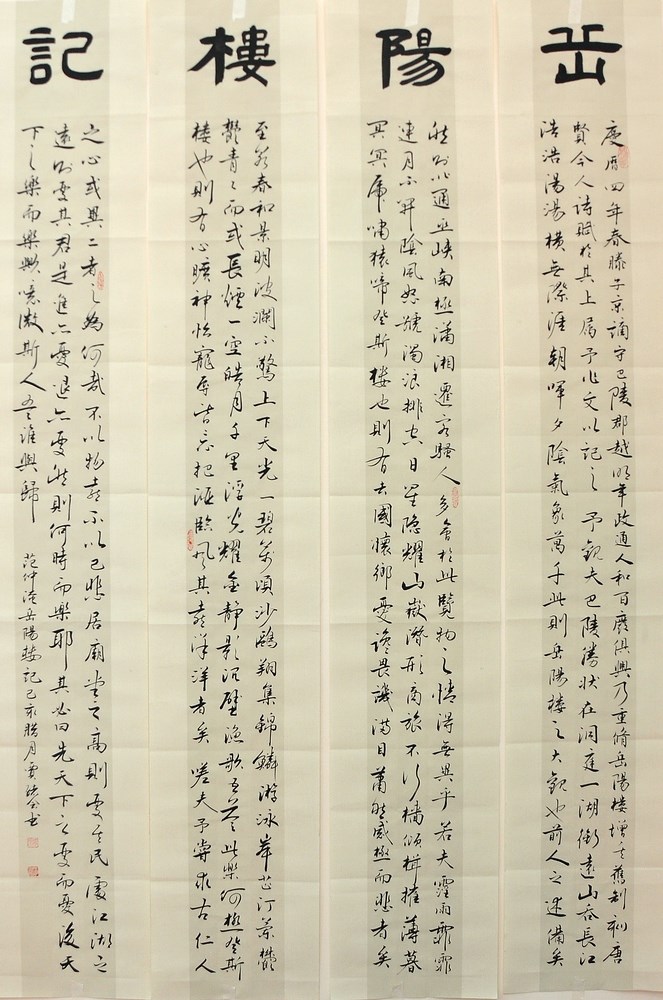 岳陽樓記
慶曆四年春滕子京謫守巴陵郡越明年政通人和百廢俱興乃重脩岳陽樓增其舊制刻唐
賢今人詩賦於其上屬予作文以記之予觀夫巴陵勝狀在洞庭一湖銜遠山吞長江
浩浩湯湯橫無際涯朝暉夕陰氣象萬千此則岳陽樓之大觀也前人之述備矣
然則北通巫峽南極瀟湘遷客騷人多會於此覽物之情得無異乎若夫霪雨霏霏
連月不開陰風怒號濁浪排空日星隱耀山嶽潛形商旅不行檣傾楫摧薄暮
冥冥虎嘯猿啼登斯樓也則有去國懷鄉憂讒畏譏滿目蕭然感極而悲者矣
至若春和景明波瀾不驚上下天光一碧萬頃沙鷗翔集錦鱗游泳岸芷汀蘭鬱
鬱青〻而或長煙一空皓月千里浮光耀金靜影沉璧漁歌互答此樂何極登斯
樓也則有心曠神怡寵辱皆忘把酒臨風其喜洋洋者矣嗟夫予嘗求古仁人
之心或異二者之為何哉不以物喜不以己悲居廟堂之高則憂其民處江湖之
遠則憂其君是進亦憂退亦憂然則何時而樂耶其必曰先天下之憂而憂後天
下之樂而樂歟噫微斯人吾誰與歸
范仲淹岳陽樓記己亥臘月